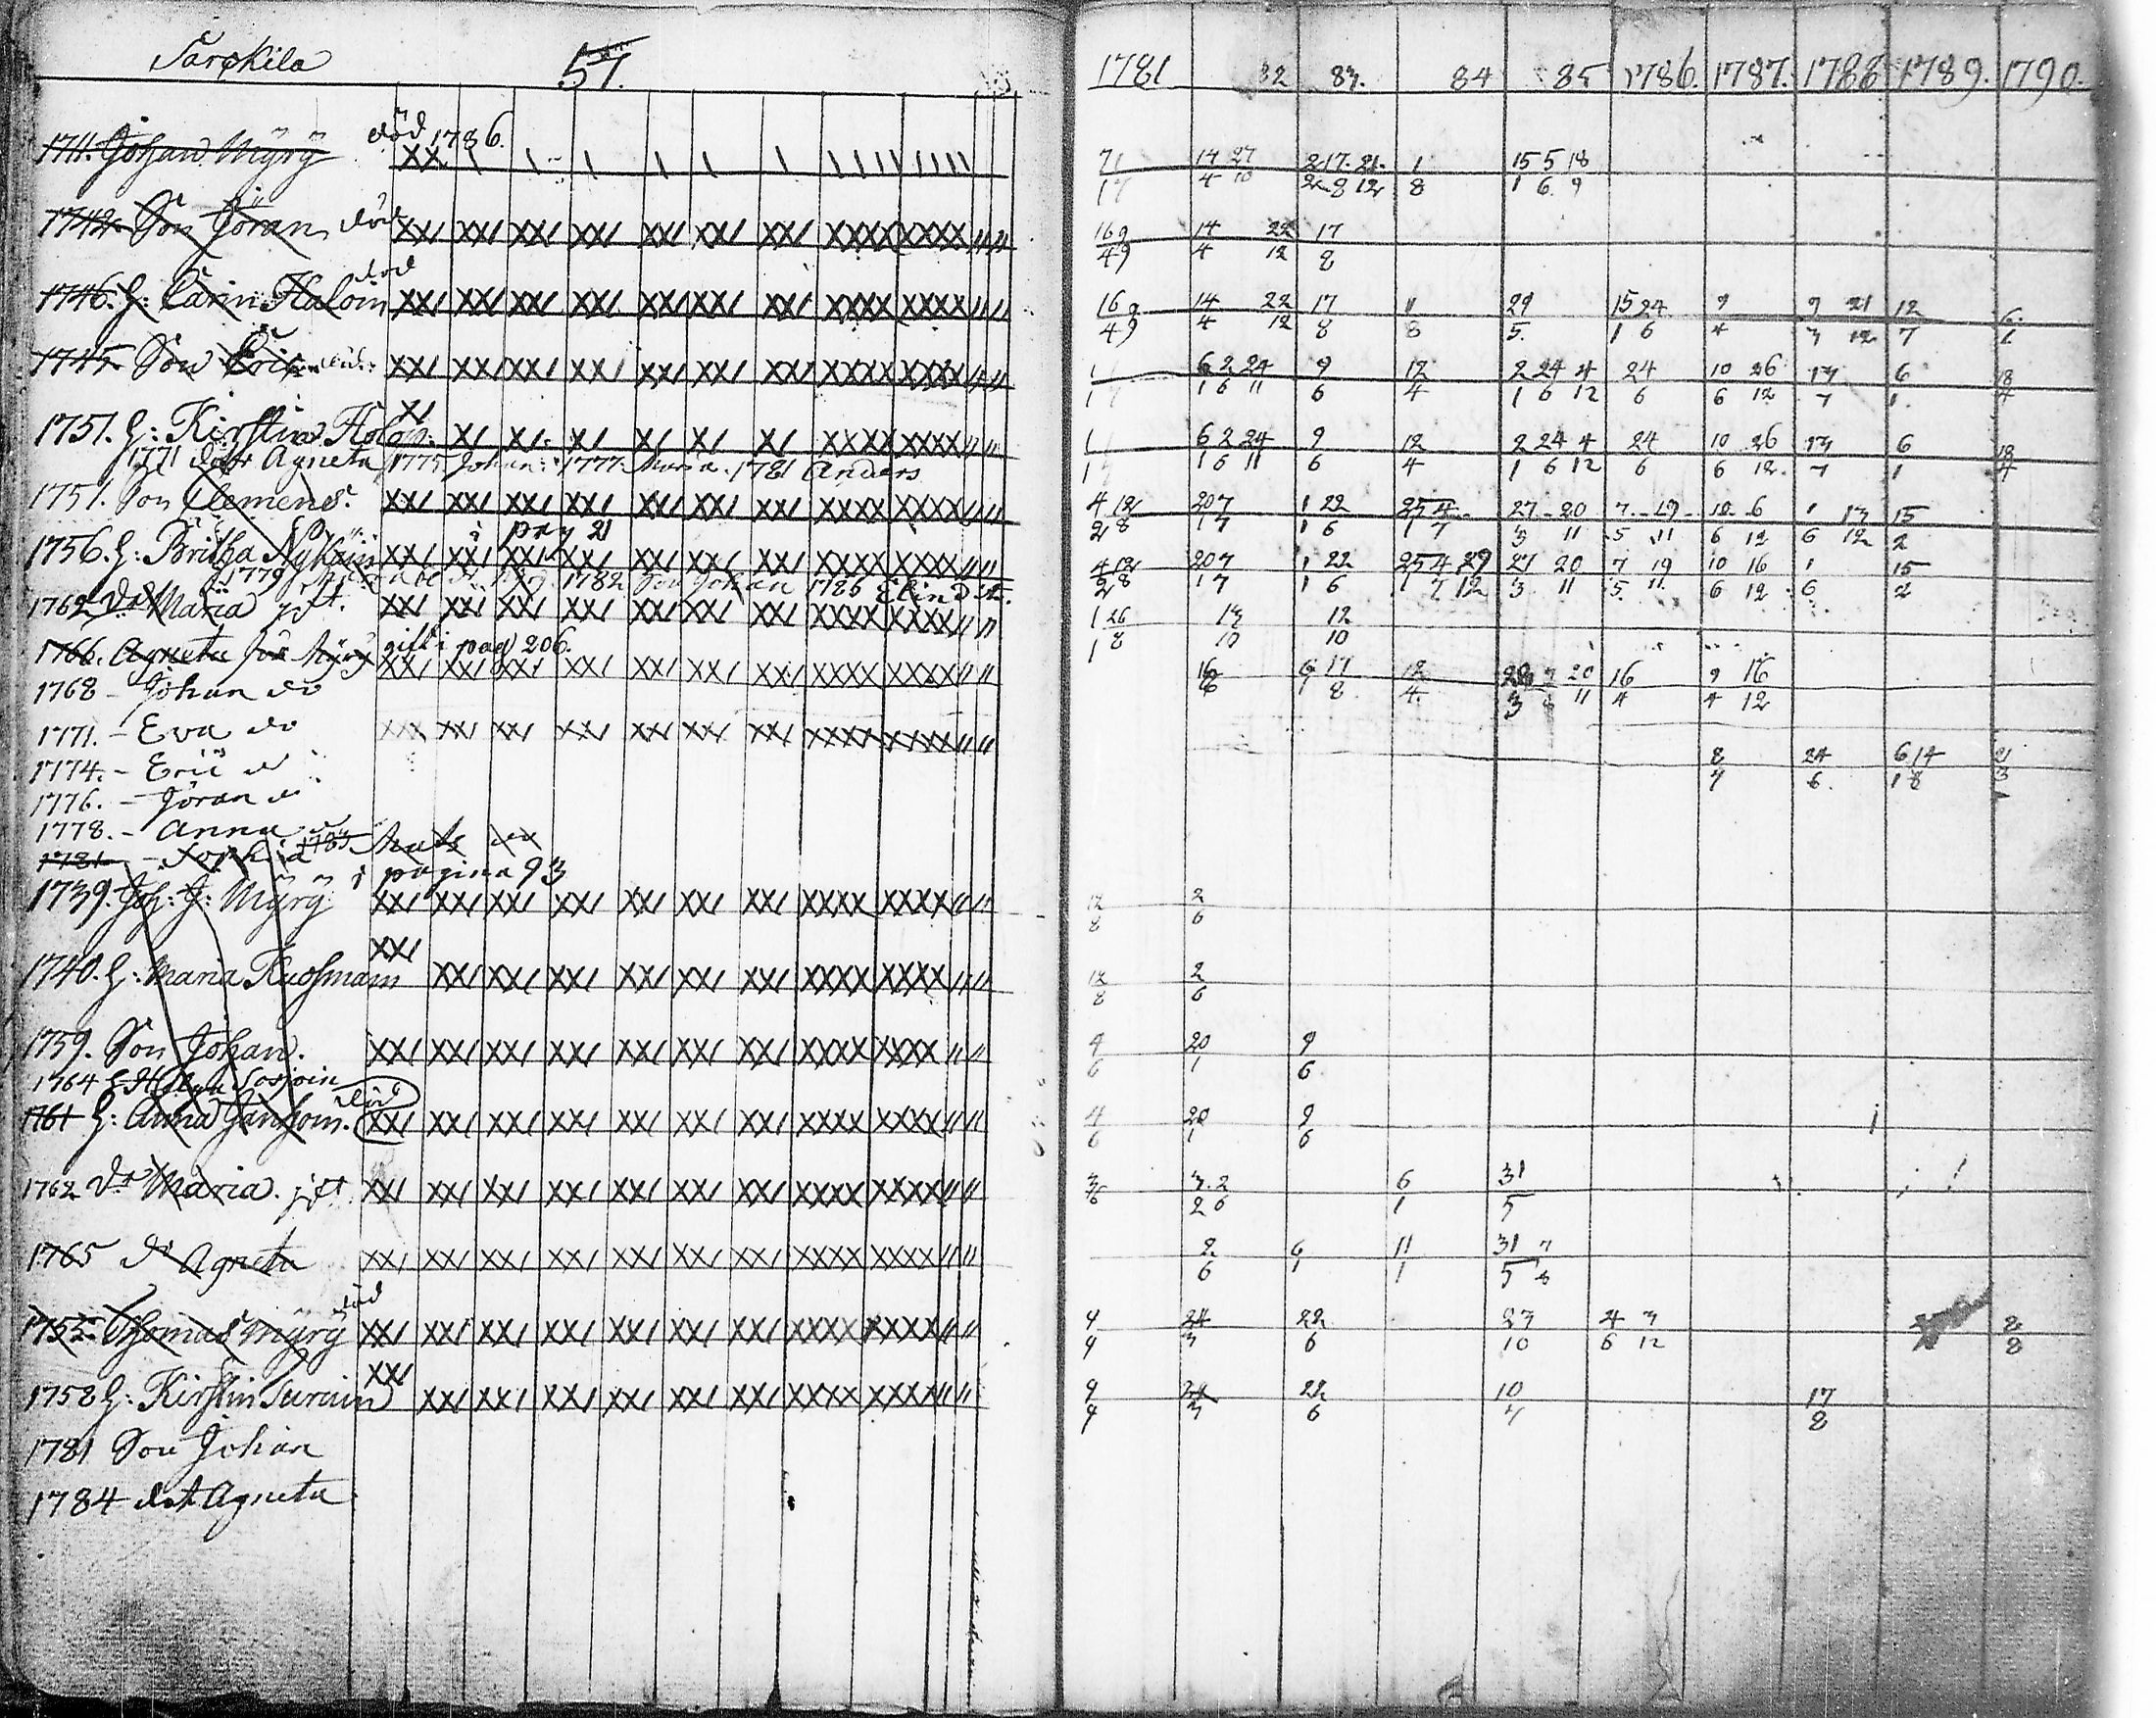 Särkilä
57.
1781 82 83. 84 85 1786. 1787. 1788 1789. 1790.
död 1786.
1711. Johan Mÿrÿ
71 14 27 2 17 21 1 15 5 18
17 4 10 2 8 12 8 1 6 9
1742. Son Jöran död
16 9 14 22 17
4 9 4 12 8
död
1746. H: Carin Haloin
16 9 14 22 17 11 29 15 24 9 9 21 12 6
4 9 4 12 8 8 5. 1 6 4 3 12 7 1
1745 Son Eric död
1 6 2 24 9 12 2 24 4 24 10 26 13 6 18
1 1 6 11 6 4 1 6 12 6 6 12 7 1. 4
1751. H: Kirstin
1 6 2 24 9 12 2 24 4 24 10 26 13 6 18
1 1 6 11 6 4 1 6 12 6 6 12. 7 1 4
1771 dotr Agneta 1775 Johan 1777 Maria 1781 Anders
1751. Son Clemens.
4 12 20 7 1 22 25 4 27 20 7 19 10 6 1 13 15
2 8 1 7 1 6 1 7 3 11 5 11 6 12 6 12 2
i pag 21
1756. H: Britha
4 12 20 7 1 22 25 4 29 27 20 7 19 10 16 1 15
2 8 1 7 1 6 1 7 12 3 11 5 11 6 12 6 2
1779 1782 Son Johan 1786 Elin
1762 dr Maria gft.
1 26 13 12
1 8 10 10
1766. Agneta Jör Myry gift i pag 206.
1768 - Johan do
16 6 17 12 7 20 16 9 16
6 1 8 4 3 11 4 4 12
1771. - Eva do
1774. - Eric do
8 24 6 14 21
7 6. 1 8 3
1776. - Jöran do
1778. - Anna do
1781 - Sophia 1783 Mats do
i pagina 93
1739. Joh: J: Mÿrÿ
12 2
8 6
1740. H: Maria Kuosmain
12 2
8 6
1759. Son Johan.
4 20 9
6 1 6
1764 H Sorjoin
1761 H: Anna Janhoin. död
4 20 9
6 1 6
1762 dr Maria. gft
3 3. 2 6 31
6 2 6 1 5
1765 dr Agneta
2 6 11 31 7
6 1 1 5 8
död
1752 Thomas Mÿrÿ
9 24 22 27 4 3 8
4 3 6 10 6 12 8
1758 H: Kirstin Turuin
9 24 22 10 17
4 3 6 7 8
1781 Son Johan
1784 dot Agneta